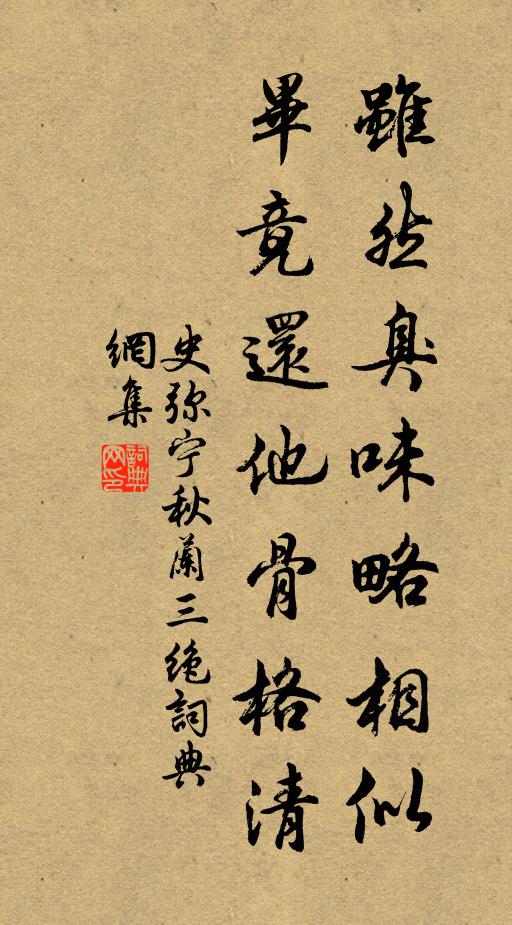 雖然臭味略相似
畢竟還他骨格清
史弥宁秋蘭三絶詞典
網集
詞典網印